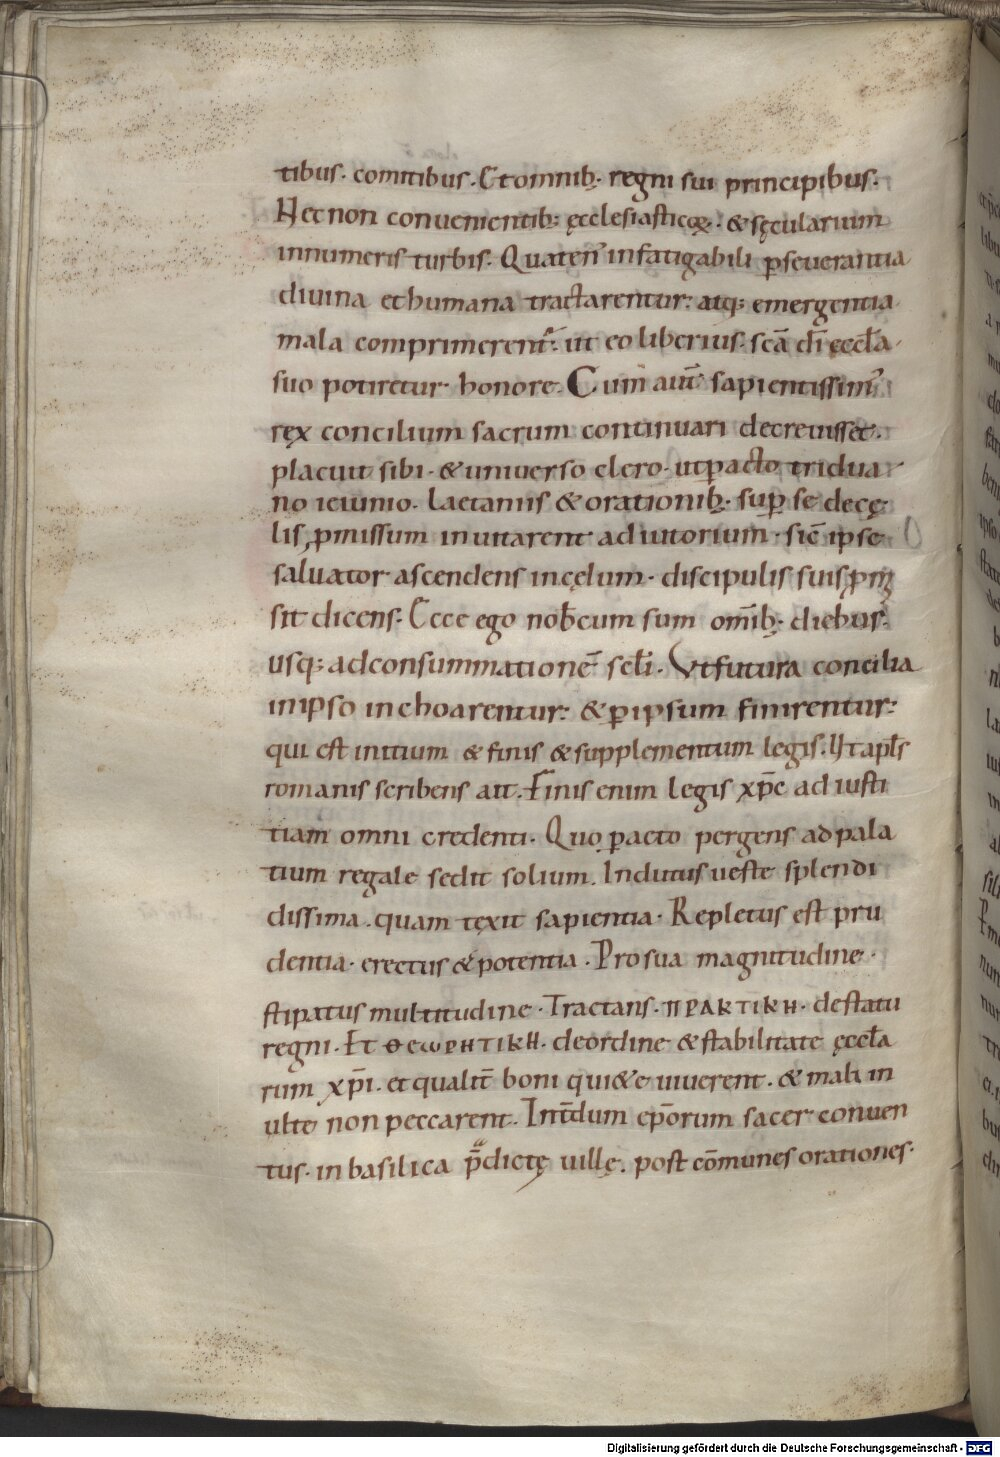 tibus. comitibus. Et omnib; regni sui principibus.
Necnon convenientib; ęcclesiasticoꝝ. & sęcularium
innumeris turbis. Quaten' infatigabili ꝑseverantia
divina et humana tractarentur. atq; emergentia
mala comprimerent̃. ut eo liberius. scā dī ęccl̄a
suo potiretur honore. Cum aut̄ sapientissim'
ręx concilium sacrum continuari decrevisset.
placuit sibi. & universo clero. ut ꝑacto tridua
no ieiunio. laetaniis & orationib;. sup̱ se de cę
lis ꝓmissum invitarent adiutorium. sic̄ ipse
salvator ascendens in cęlum. discipulis suis ꝓmi
sit dicens. Ecce ego nob̄cum sum om̄ib; diebus.
usq; ad consummationē scl̄i. Ut futura concilia
in ipso inchoarentur. & ꝑ ipsum finirentur.
qui est initium & finis & supplementum legis. Ut apl̄s
romanis scribens ait. Finis enim legis xp̄c ad iusti
tiam omni credenti. Quo ꝑacto pergens ad pala
tium regale sedit solium. Indutus veste splendi
dissima. quam tęxit sapientia. Repletus est pru
dentia. erectus & potentia. Pro sua magnitudine
stipatus multitudine. Tractans. ΠΡΑΚΤΙΚΗ. de statu
regni. Et ΘΕωΡΗΤΙΚΗ. de ordine & stabilitate ęccl̄a
rum xp̄i. et qualit̄ boni qui&e viverent. & mali in
ulte non peccarent. Int̄dum ep̄orum sacer conven
tus. in basilica p̄dictę villę. post cōmunes orationes.
Digitalisierung gefördert durch die Deutsche Forschungsgemeinschaft - DFG